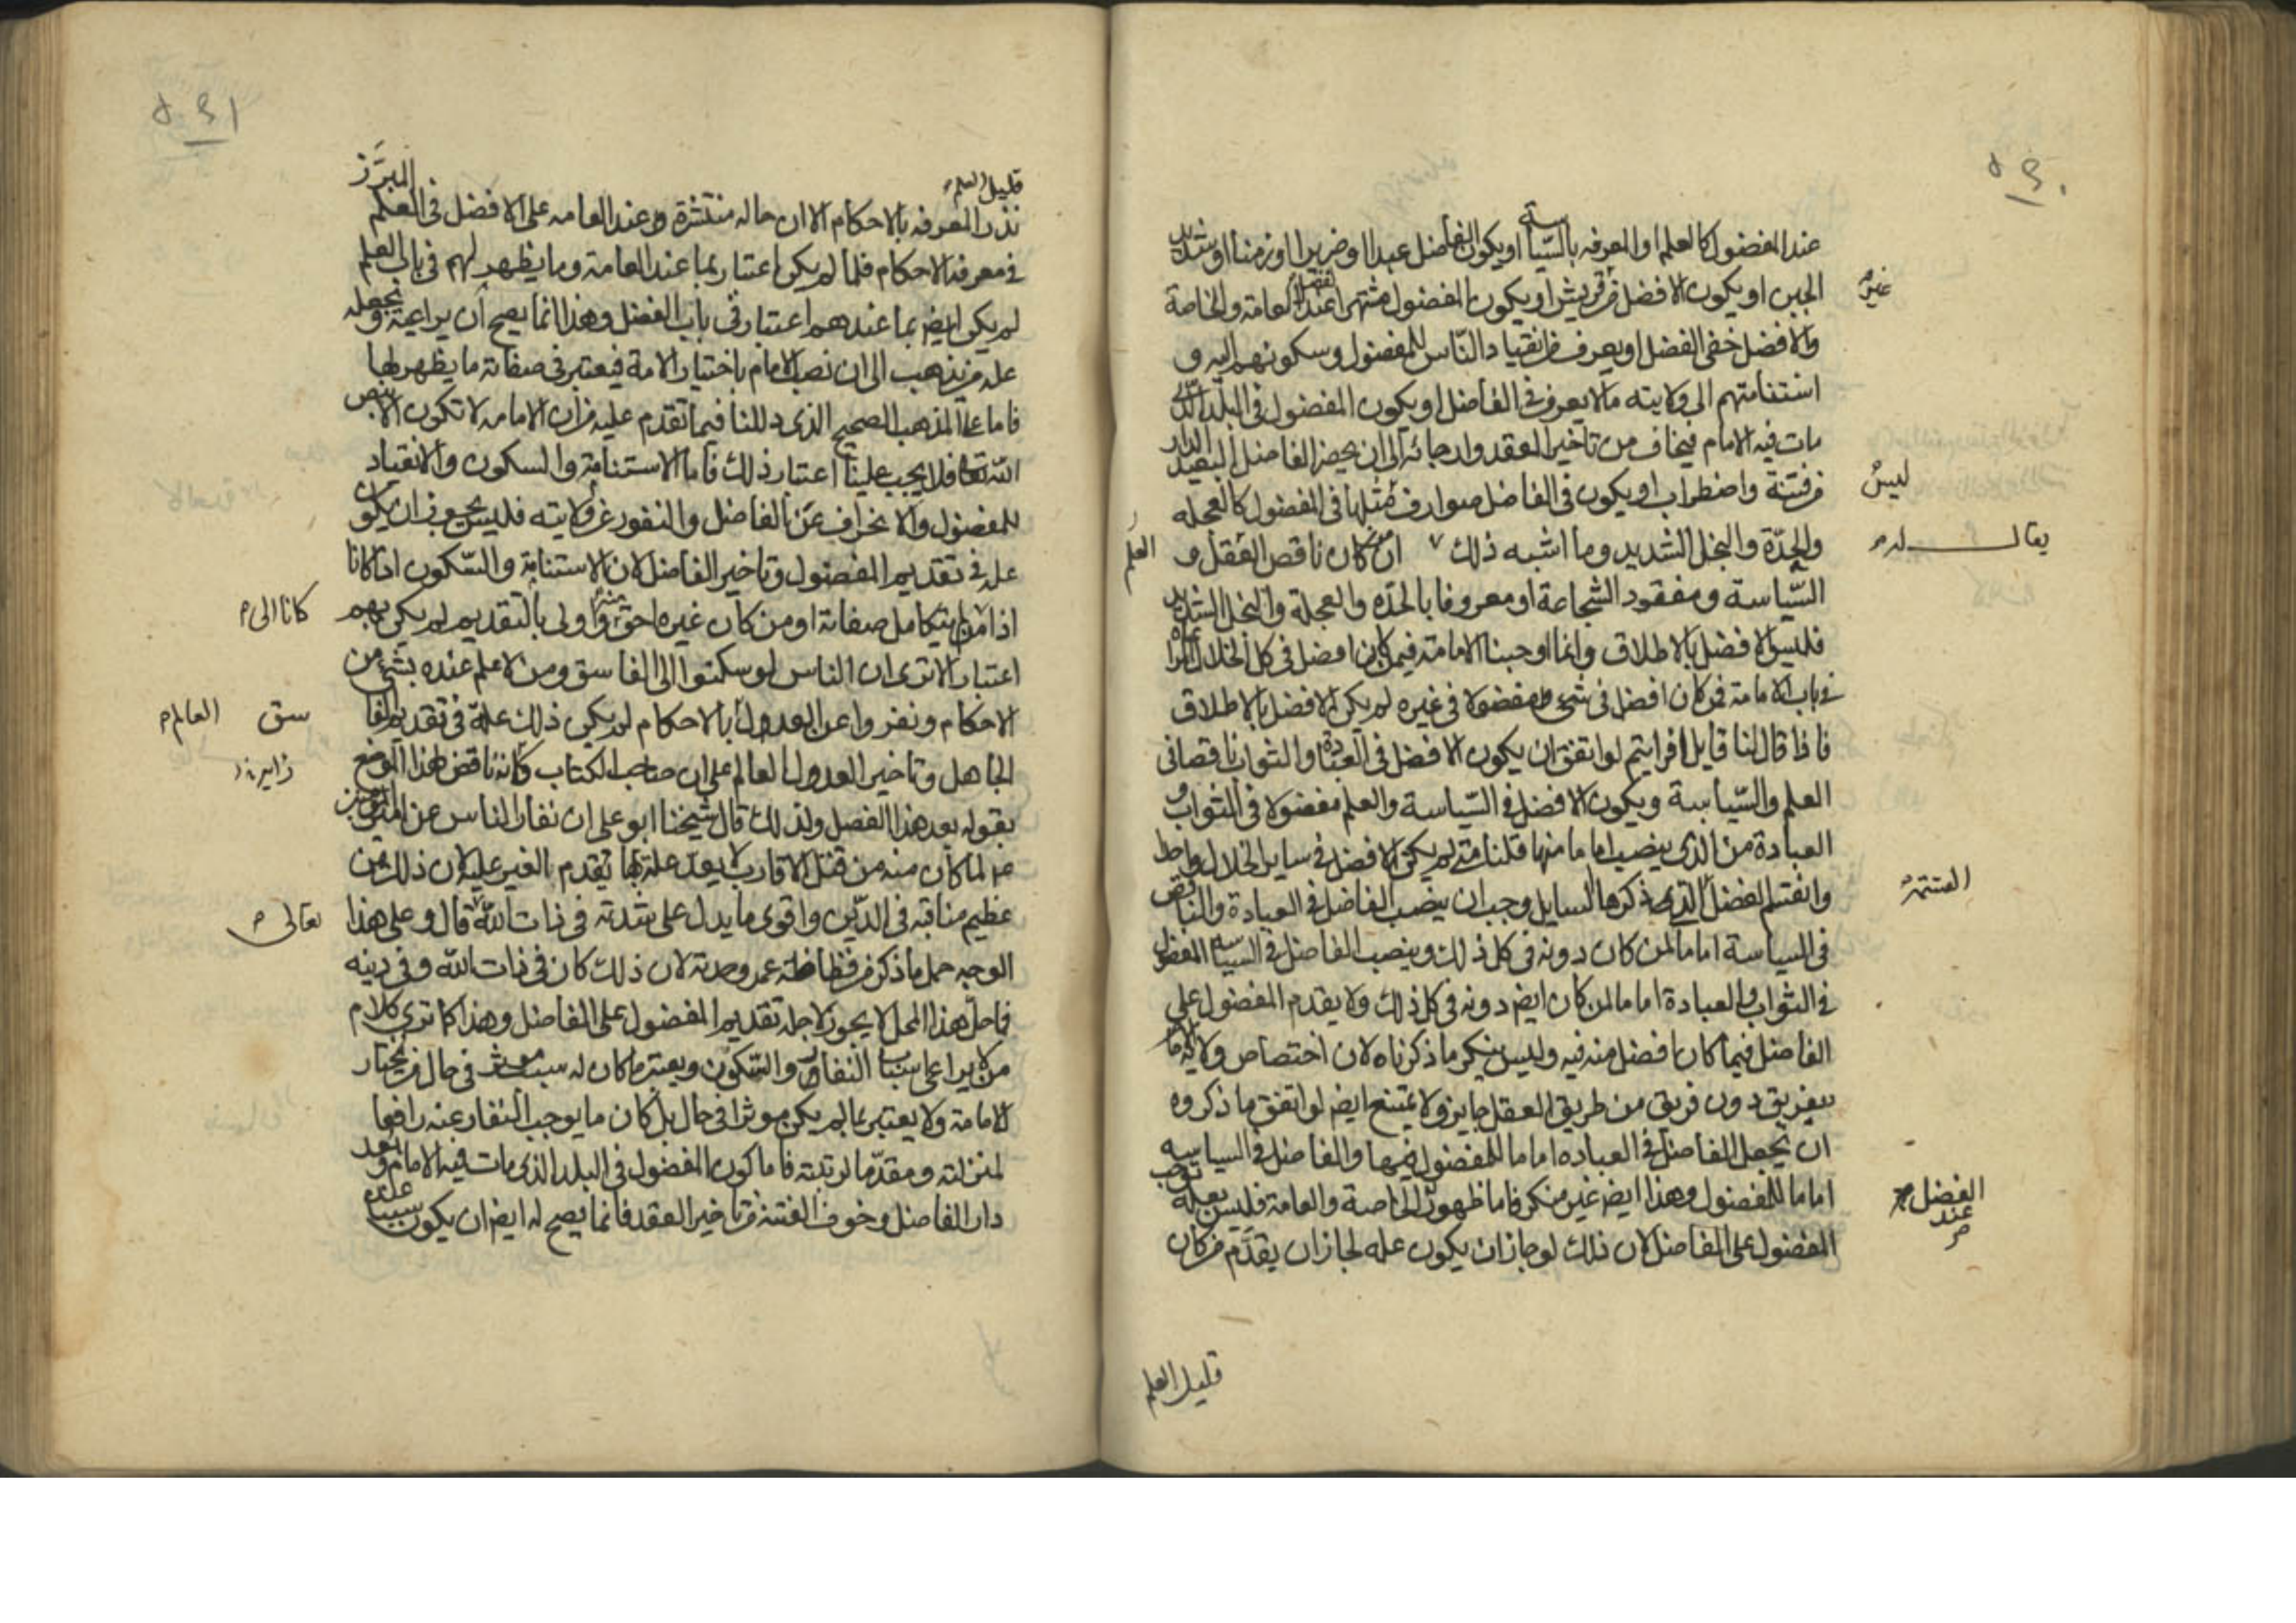 عند المفضول كالعلم او المعرفه بالسّياسة او يكون الفاضل عبدا او ضريرا او زمنا او شديد
الجبن او يكون الافضل من قريش او يكون المفضول مشتهرا عند العامة والخاصة
غير
والافضل خفى الفضل او يعرف من انقياد النّاس للمفضول وسكونهم اليه و
استنامتهم الى ولايته ما لا يعرف في الفاضل او يكون المفضول في البلد الذى
مات فيه الامام فيخاف من تاخير العقد وارجائه الى ان يحضر الفاضل البعيد الدار
من فتنة واضطراب او يكون في الفاضل صوارف مثلها في المفضول كالعجله
ليس
والحدّة والبخل الشديد وما اشبه ذلك ان من كان ناقص العقل و
يقال له
العلم
السّياسة ومفقود الشجاعة او معروفا بالحدّه والعجلة والبخل الشديد
فليس الافضل بالاطلاق وانما اوجبنا الامامة فيمن كان افضل في كل الخلال المراعاة
في باب الامامة فمن كان افضل في شىء ومفضولا في غيره لم يكن الافضل بالاطلاق
فاذا قال لنا قايل افرايتم لو اتفق ان يكون الافضل في العبادة والثواب ناقصا في
العلم والسّياسة ويكون الافضل في السّياسة والعلم مفضولا في الثواب و
العبادة من الذى ينصب اماما منها قلنا متى لم يكن الافضل في ساير الخلال واحدا
وانقسم الفضل الذى ذكرها السايل وجب ان ينصب الفاضل في العبادة والناقص
القسمة
في السياسة اماما لمن كان دونه في كل ذلك وينصب الفاضل في السياسة المفضول
في الثواب والعبادة اماما لمن كان ايضر دونه في كل ذلك ولا يقدم المفضول على
الفاضل فيما كان افضل منه فيه وليس ينكر ما ذكرناه لان اختصاص ولاية الامام
بفريق دون فريق من طريق العقل جايز ولا يمتنع ايضر لو اتفق ما ذكروه
ان يجعل الفاضل في العباده اماما للمفضول فيها والفاضل في السياسيه
اماما للمفضول وهذا ايضر غير منكر فاما ظهور الخاصة والعامة فليس بعلة توجب
الفضل عند
المفضول على الفاضل لان ذلك لو جاز ان يكون عله لجاز ان يقدّم من كان
قليل العلم
قليل العلم
نذر المعرفه بالاحكام الا ان حاله منتشرة عند العامه على الافضل في العلم المبرّز
في معرفة الاحكام فلما لم يكن اعتبار بما عند العامة وما يظهر لهم في باب العلم
لم يكن ايضر بما عندهم اعتبار في باب الفضل وهذا انما يصح ان يراعيه ويجعله
علة من يذهب الى ان نصب الامام باختيار الامة فيعتبر في صفاته ما يظهر لها
فاما على المذهب الصحيح الذى دللنا فيما تقدم عليه من ان الامامه لا تكون الا بنص
اللّه تعا فلا يجب علينا اعتبار ذلك فاما الاستنامة والسكون والانقياد
للمفضول والانحراف عن الفاضل والنفور عن ولايته فليس يجوز ان يكون
عله في تقديم المفضول وتاخير الفاضل لان الاستنامة والسّكون اذا كانا
اذا من لم يتكامل صفاته او من كان غيره احق منه واولى بالتقديم لم يكن بهم
كانا الى
اعتبار الا ترى ان الناس لو سكنوا الى الفاسق ومن لا علم عنده بشىء من
الاحكام ونفروا عن العدول بالاحكام لم يكن ذلك علّة في تقديم الفا
سق العالم
الجاهل وتاخير العدول العالم على ان صاحب الكتاب كانه ناقض هذا الموضع
بقوله بعد هذا الفصل ولذلك قال شيخنا ابو على ان نفار الناس عن امير المؤمنين
لما كان منه من قتل الاقارب لا يعد علة لها تقدم الغير عليه لان ذلك من
عظيم مناقبه في الدّين واقوى ما يدل على شدته في ذات اللّه قال وعلى هذا
تعالى
الوجه حمل ما ذكر من فظاظة عمر وحدته لان ذلك كان في ذات اللّه وفي دينه
فما حلّ هذا المحل لا يجوز لاجله تقديم المفضول على الفاضل وهذا كما ترى كلام
من لا يراعى اسباب النفار والسّكون ويعتبر ما كان له سبب موثر في حال من يختار
للامامة ولا يعتبر بما لم يكن موثرا في حال بل كان ما يوجب النفار عنه رافعا
لمنزلته ومقدّما لرتبته فاما كون المفضول في البلد الذى مات فيه الامام وبعد
دار الفاضل وخوف الفتنة من تاخير العقد فانما يصح له ايضر ان يكون سببا عند